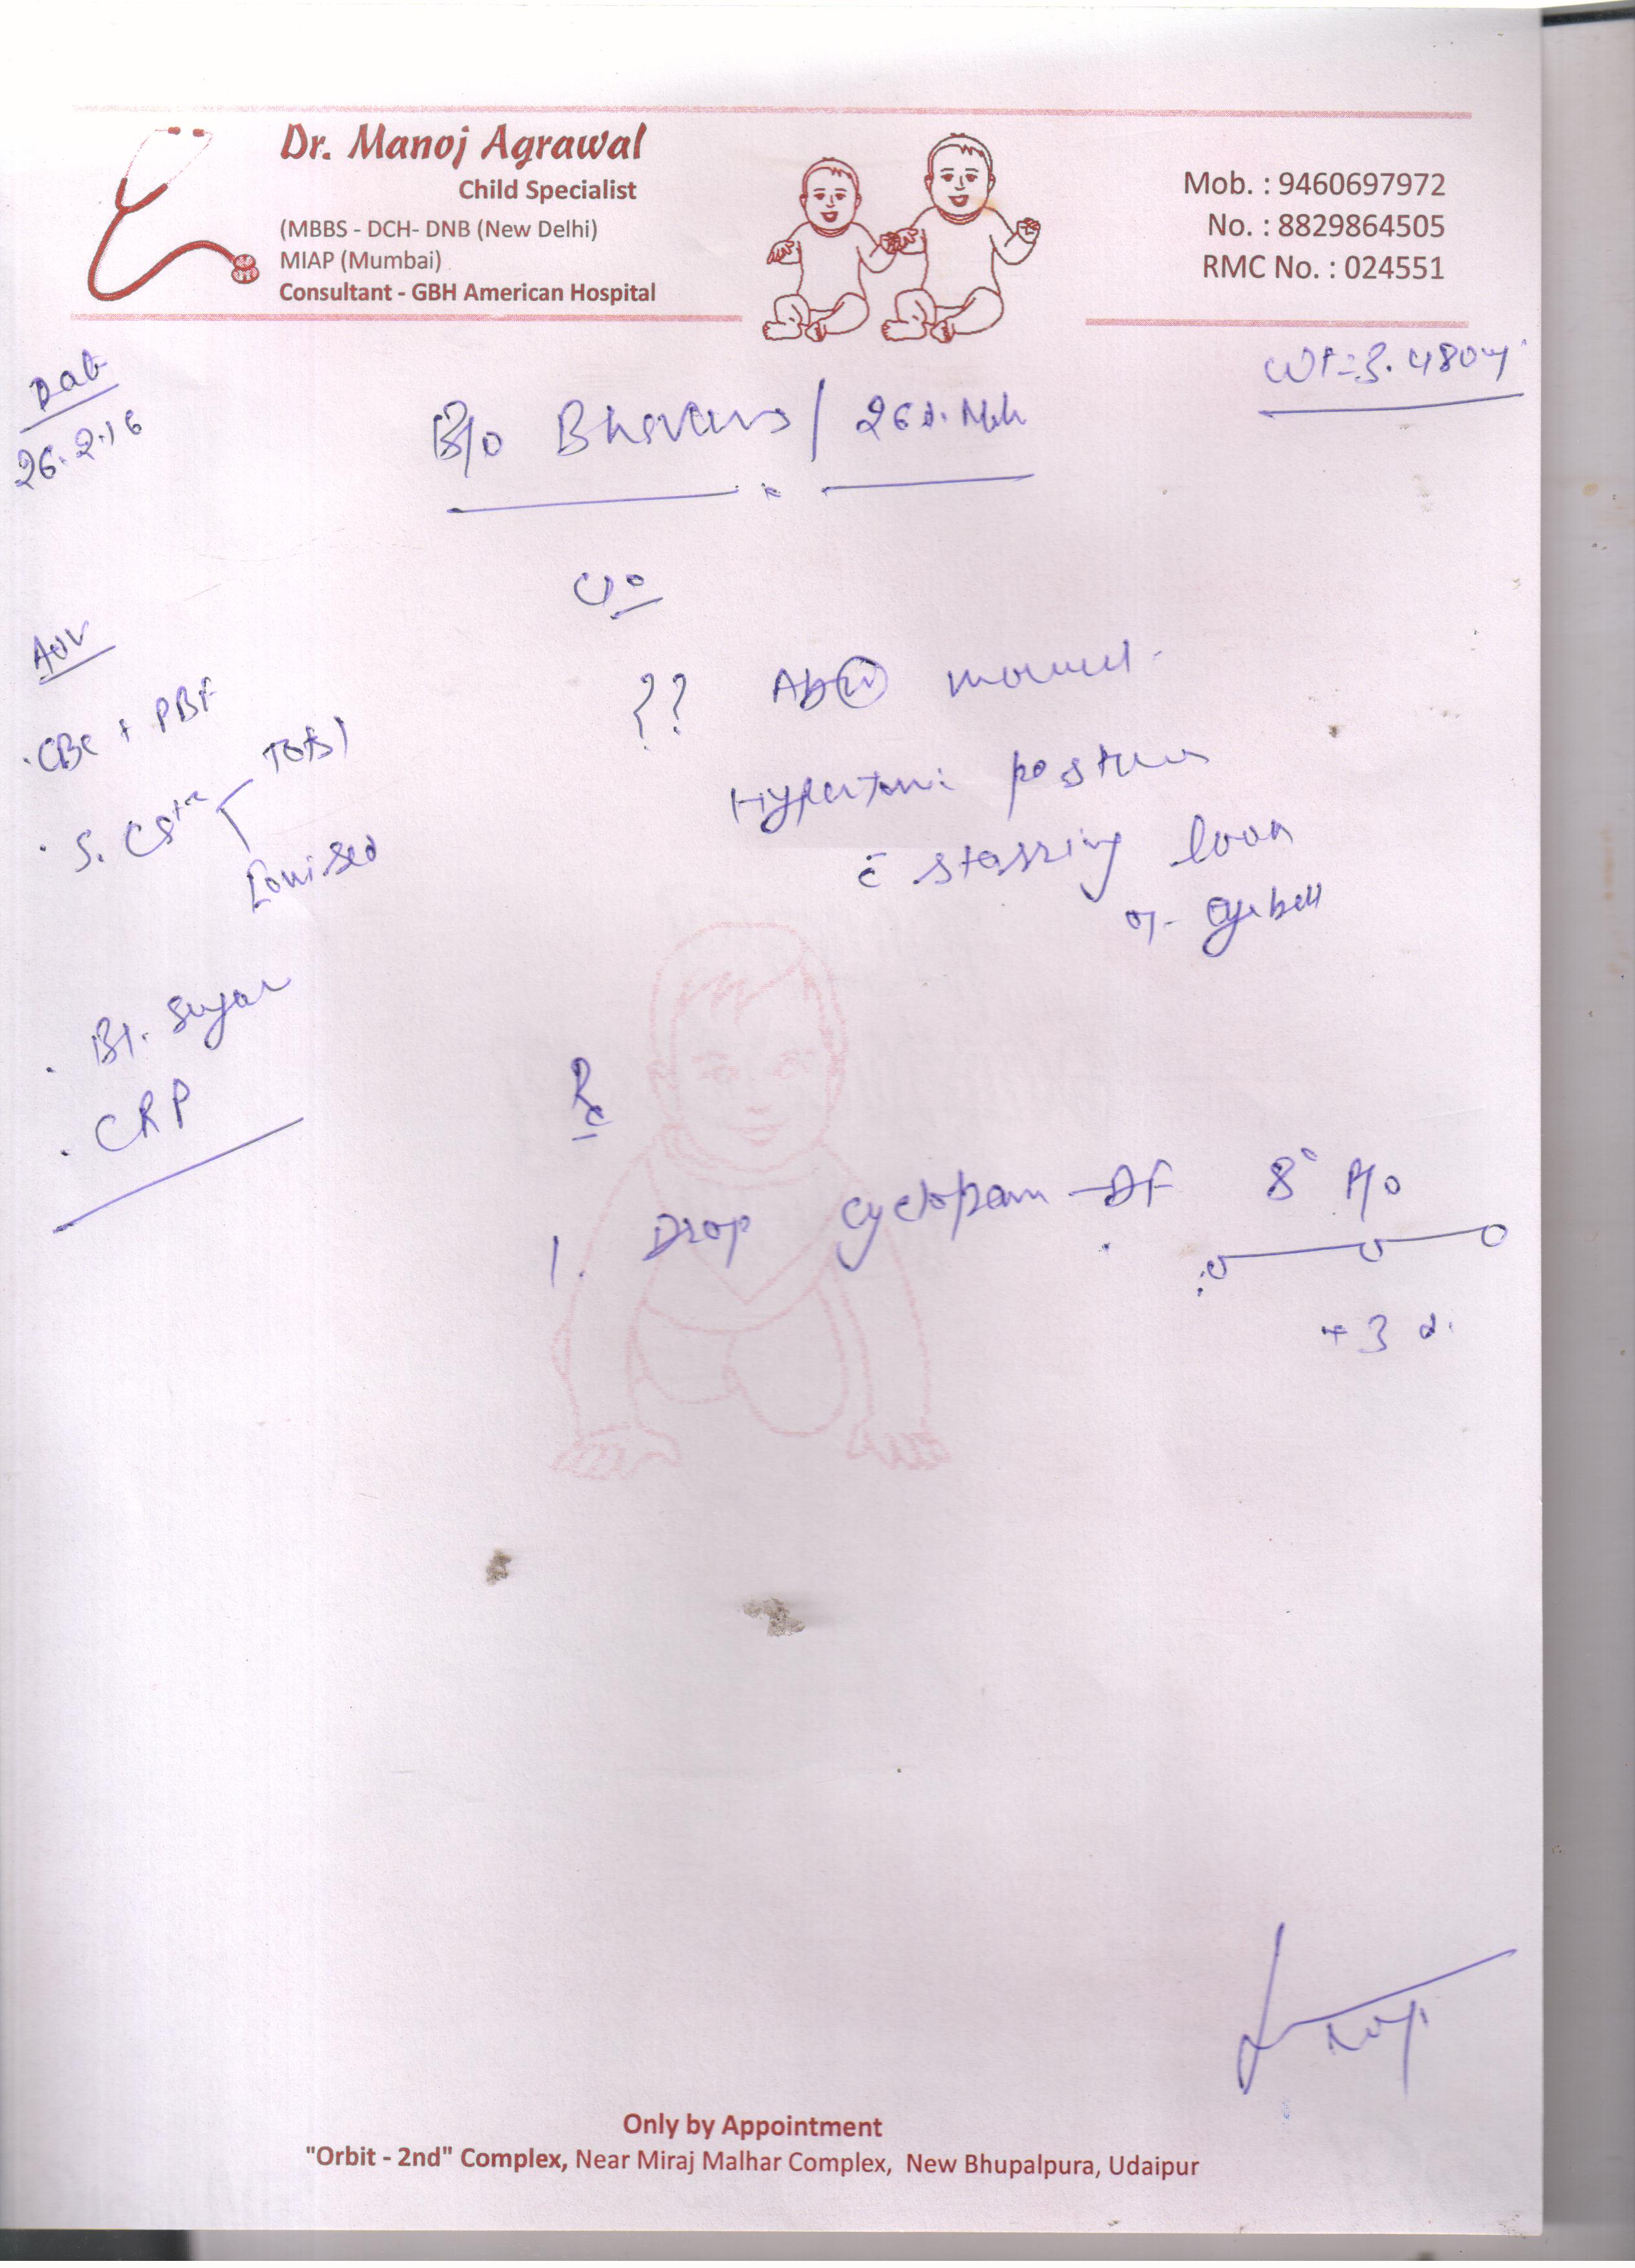 Dr. Manoj Agrawal
Child Specialist
(MBBS - DCH- DNB (New Delhi)
MIAP (Mumbai)
Consultant - GBH American Hospital
Mob. : 9460697972
No. : 8829864505
RMC No. : 024551
Wt = 3.480
Date
26.2.16
B/o / 26 d.
C/o
Adv
?? Ab(N)
. CBC + PBF
Total
posture
. S. Ca++
c̄ starring look
Ionised
of eyeball
. Bl. Sugar
. CRP
Rx
1. Drop Cyclopam - DF 8° P/o
× 3 d.
Only by Appointment
"Orbit - 2nd" Complex, Near Miraj Malhar Complex, New Bhupalpura, Udaipur